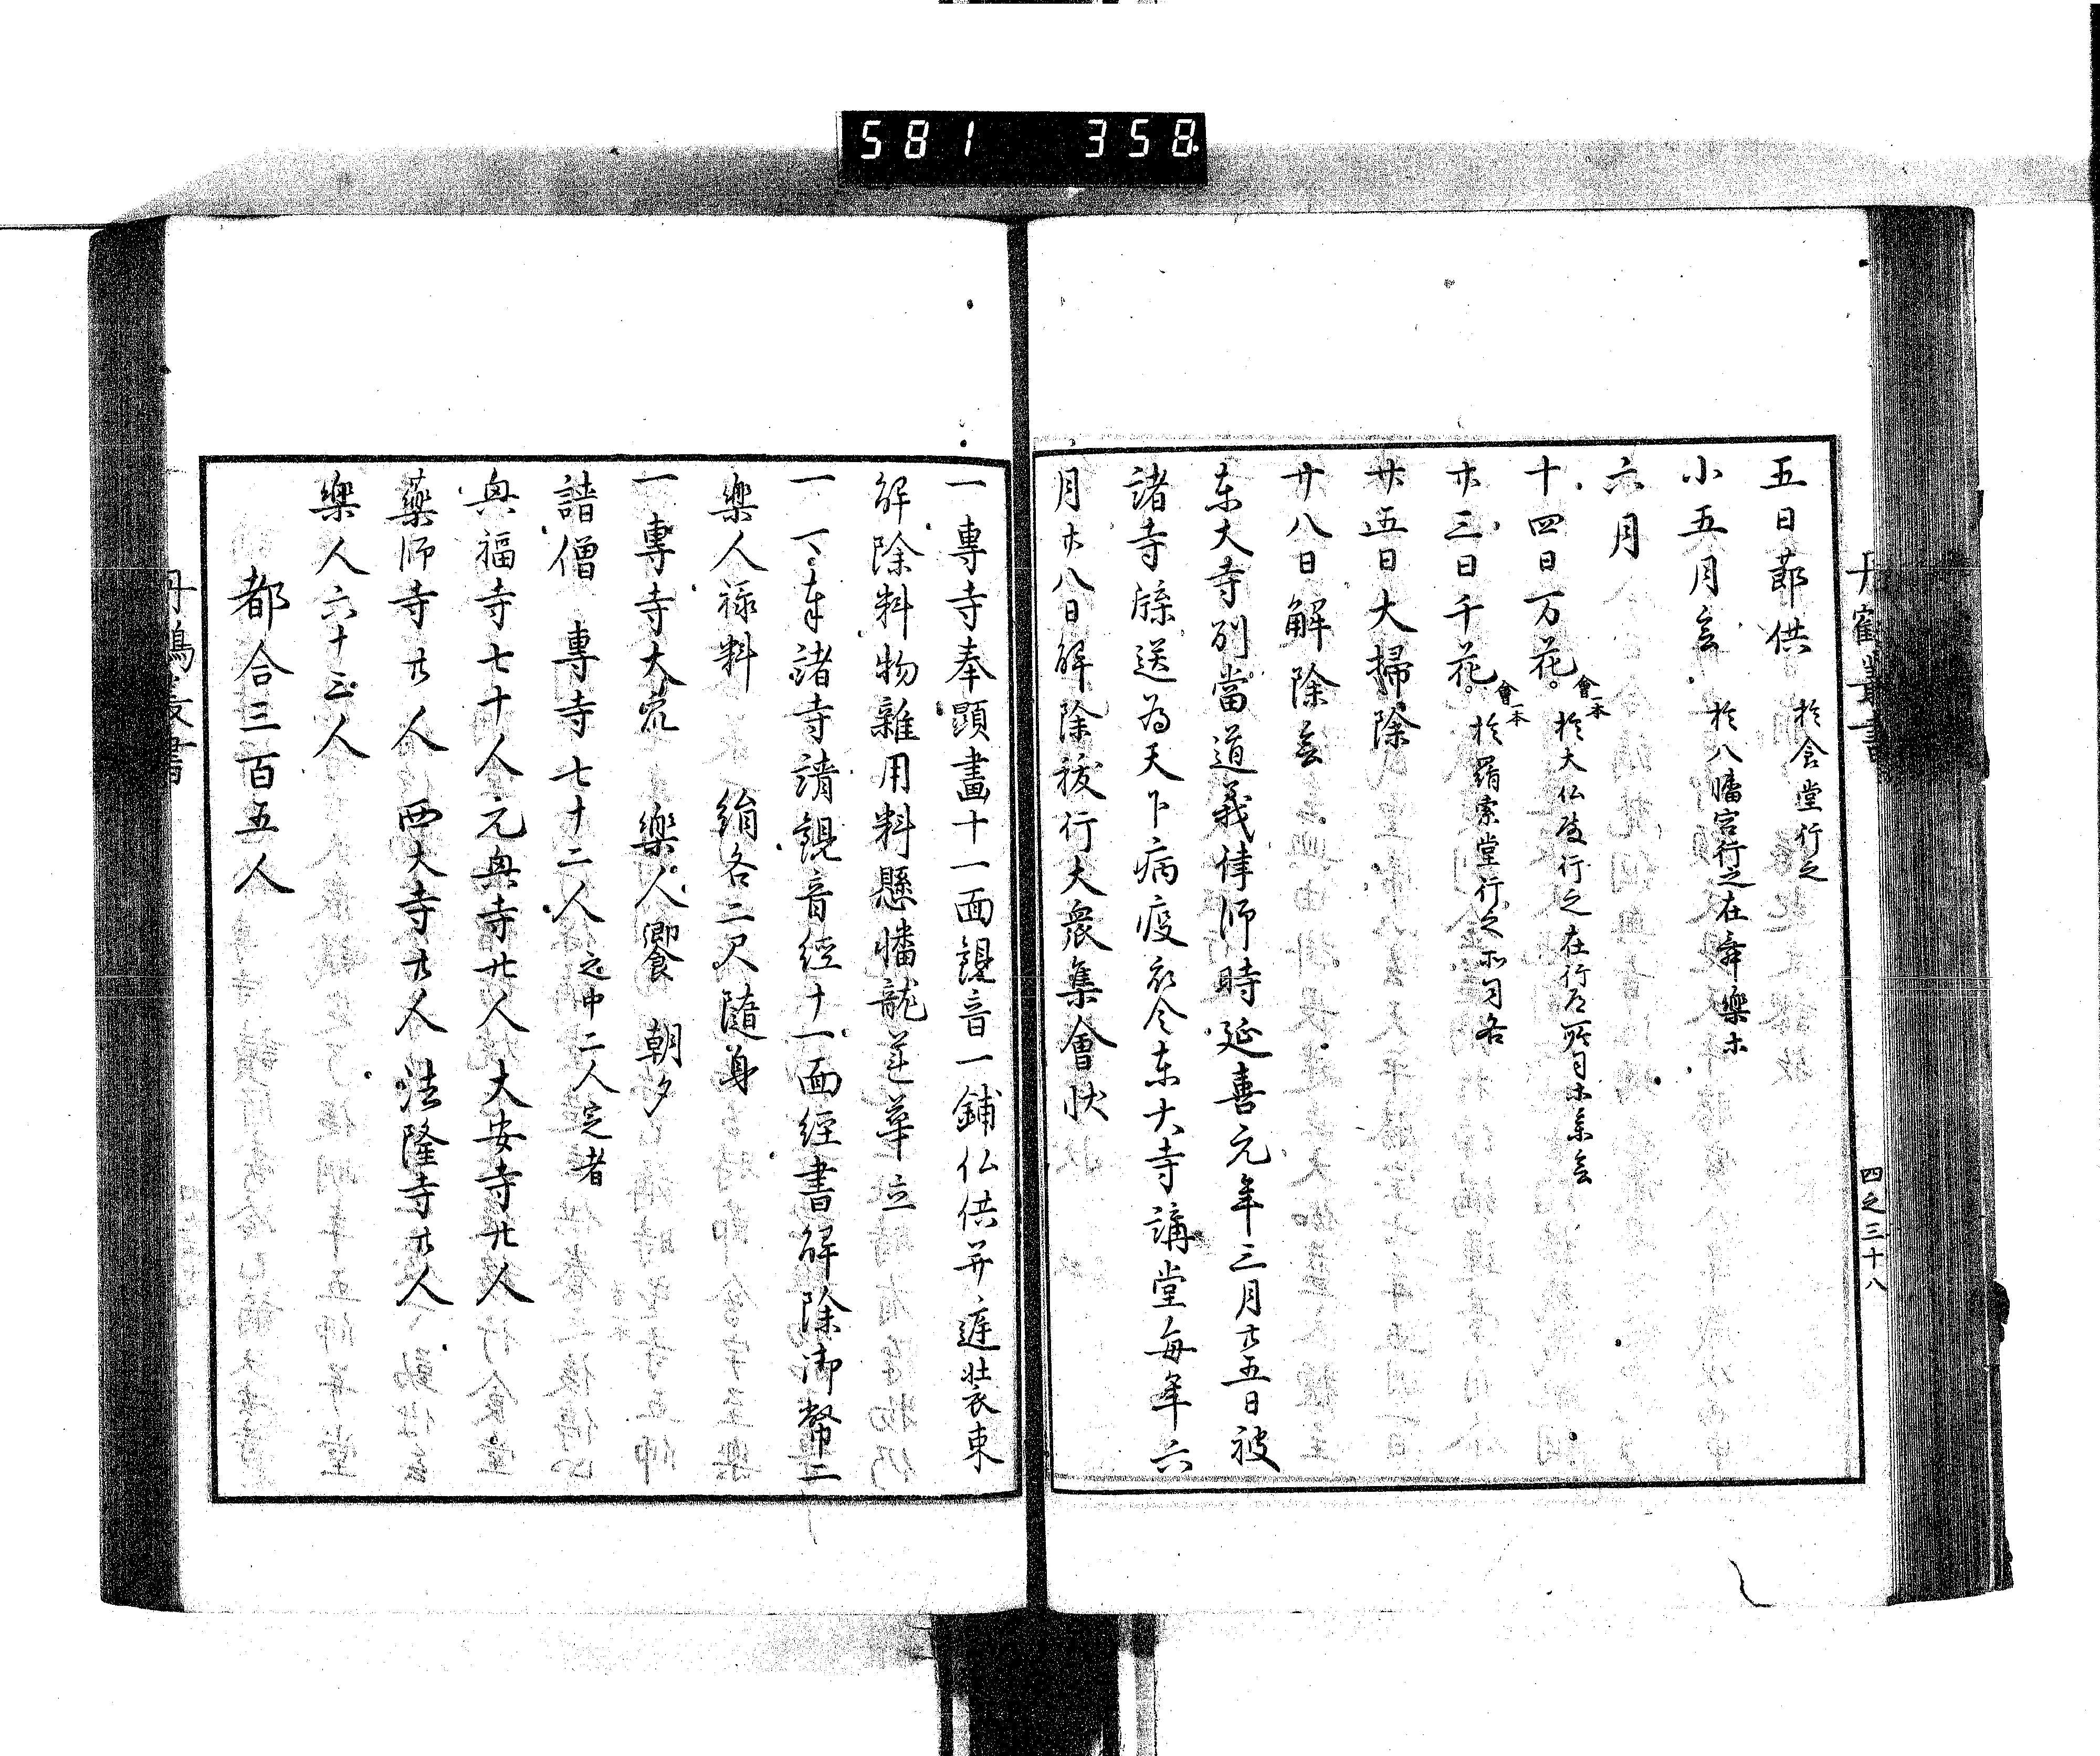 581 358
丹鶴叢書
四之三十八
五日莭供 於食堂行之
小五月會 於八幡宮行之在舞樂ホ
六月
十四日万花 會一本 於大仏殿行之在行
廿三日千花 會一本 於羂索堂行之
廿五日大掃除
廿八日解除會
东大寺別當道義律师時延喜元年三月廿五日被
諸寺牒送為天下病疫
令东大寺講堂每年六
月廿八日解除祓行大衆集會状
一專寺奉顕畫十一面観音一鋪仏供并莚装束
解除料物雜用料懸幡龍蓮華立
一諸寺請観音經十一面經書解除御幣二
樂人禄料 絹各二尺隨身
一專寺大衆 樂人饗 朝夕
請僧 專寺七十二人 之中二人定者
興福寺七十人元興寺廿人 大安寺廿人
藥师寺廿人 西大寺廿人 法隆寺廿人
樂人六十三人
都合三百五人
丹鶴叢書